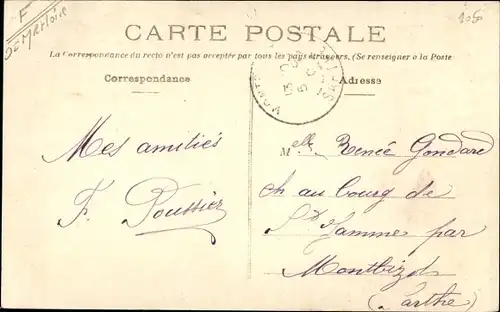 F
105
CARTE POSTALE
La Correspondance du recto n'est pas acceptée par tous les pays étrangers. (Se renseigner à la Poste
Correspondance
Adresse
Mes amitiés
F. Poussier
Melle Renée Gondard
ch au bourg de
St Jamme par
Montbizot
(Sarthe)